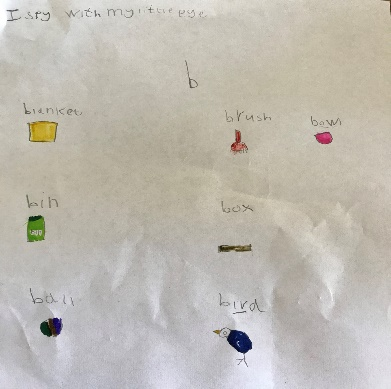 I spy with my little eye
b
blanket
brush bowl
bin
box
ball
bird